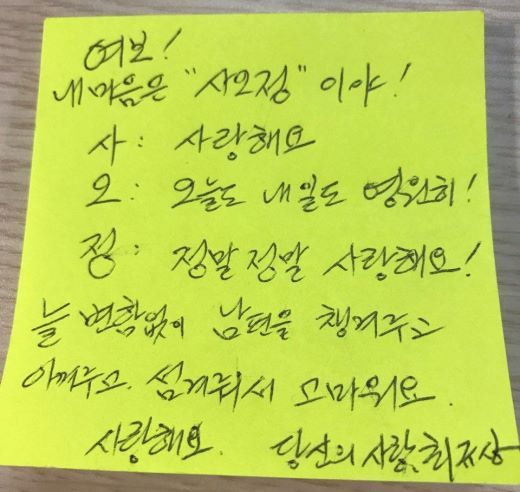 여보!
내 마음은 "사오정" 이야!
사: 사랑해요
오: 오늘도 내일도 영원히!
정: 정말 정말 사랑해요!
늘 변함없이 남편을 챙겨주고
아껴주고. 섬겨줘서 고마워요.
사랑해요. 당신의 사랑, 최